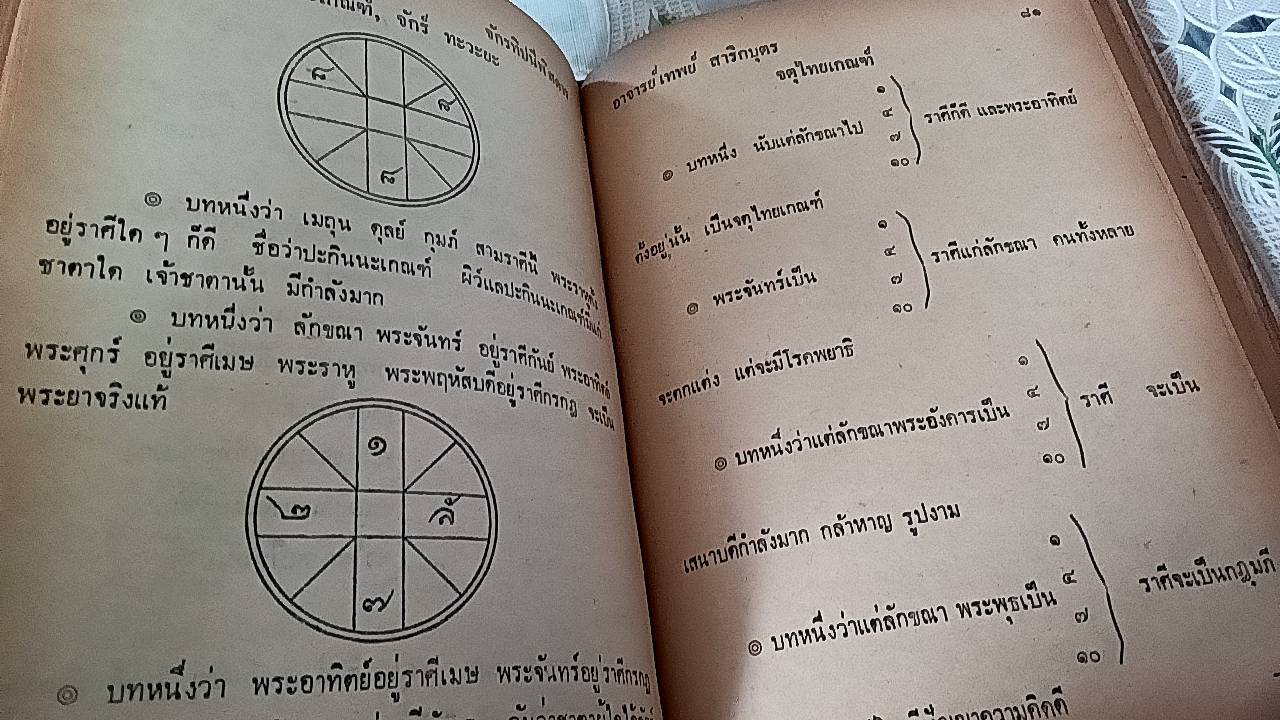 เกณฑ์, จักร์ ทะวะยะ
จักรทีปนี
๘
๘
๘
๏ บทหนึ่งว่า เมถุน ดุลย์ กุมภ์ สามราศีนี้ พระราหู
อยู่ราศีใด ๆ ก็ดี ชื่อว่าปะกินนะเกณฑ์ ผิว์แลปะกินนะเกณฑ์นี้แก่
ชาตาใด เจ้าชาตานั้น มีกำลังมาก
๏ บทหนึ่งว่า ลักขณา พระจันทร์ อยู่ราศีกันย์ พระอาทิตย์
พระศุกร์ อยู่ราศีเมษ พระราหู พระพฤหัสบดีอยู่ราศีกรกฏ จะเป็น
พระยาจริงแท้
๑
๒
ลั
๗
๏ บทหนึ่งว่า พระอาทิตย์อยู่ราศีเมษ พระจันทร์อยู่ราศีกรกฏ
๘๑
อาจารย์เทพย์ สาริกบุตร
จตุไทยเกณฑ์
๏ บทหนึ่ง นับแต่ลักขณาไป
๑
๔
๗
๑๐
ราศีก็ดี และพระอาทิตย์
ตั้งอยู่นั้น เป็นจตุไทยเกณฑ์
๏ พระจันทร์เป็น
๑
๔
๗
๑๐
ราศีแก่ลักขณา คนทั้งหลาย
จะตกแต่ง แต่จะมีโรคพยาธิ
๏ บทหนึ่งว่าแต่ลักขณาพระอังคารเป็น
๑
๔
๗
๑๐
ราศี จะเป็น
เสนาบดีกำลังมาก กล้าหาญ รูปงาม
๏ บทหนึ่งว่าแต่ลักขณา พระพุธเป็น
๑
๔
๗
๑๐
ราศีจะเป็นกฎุมภี
ปัญญาความคิดดี